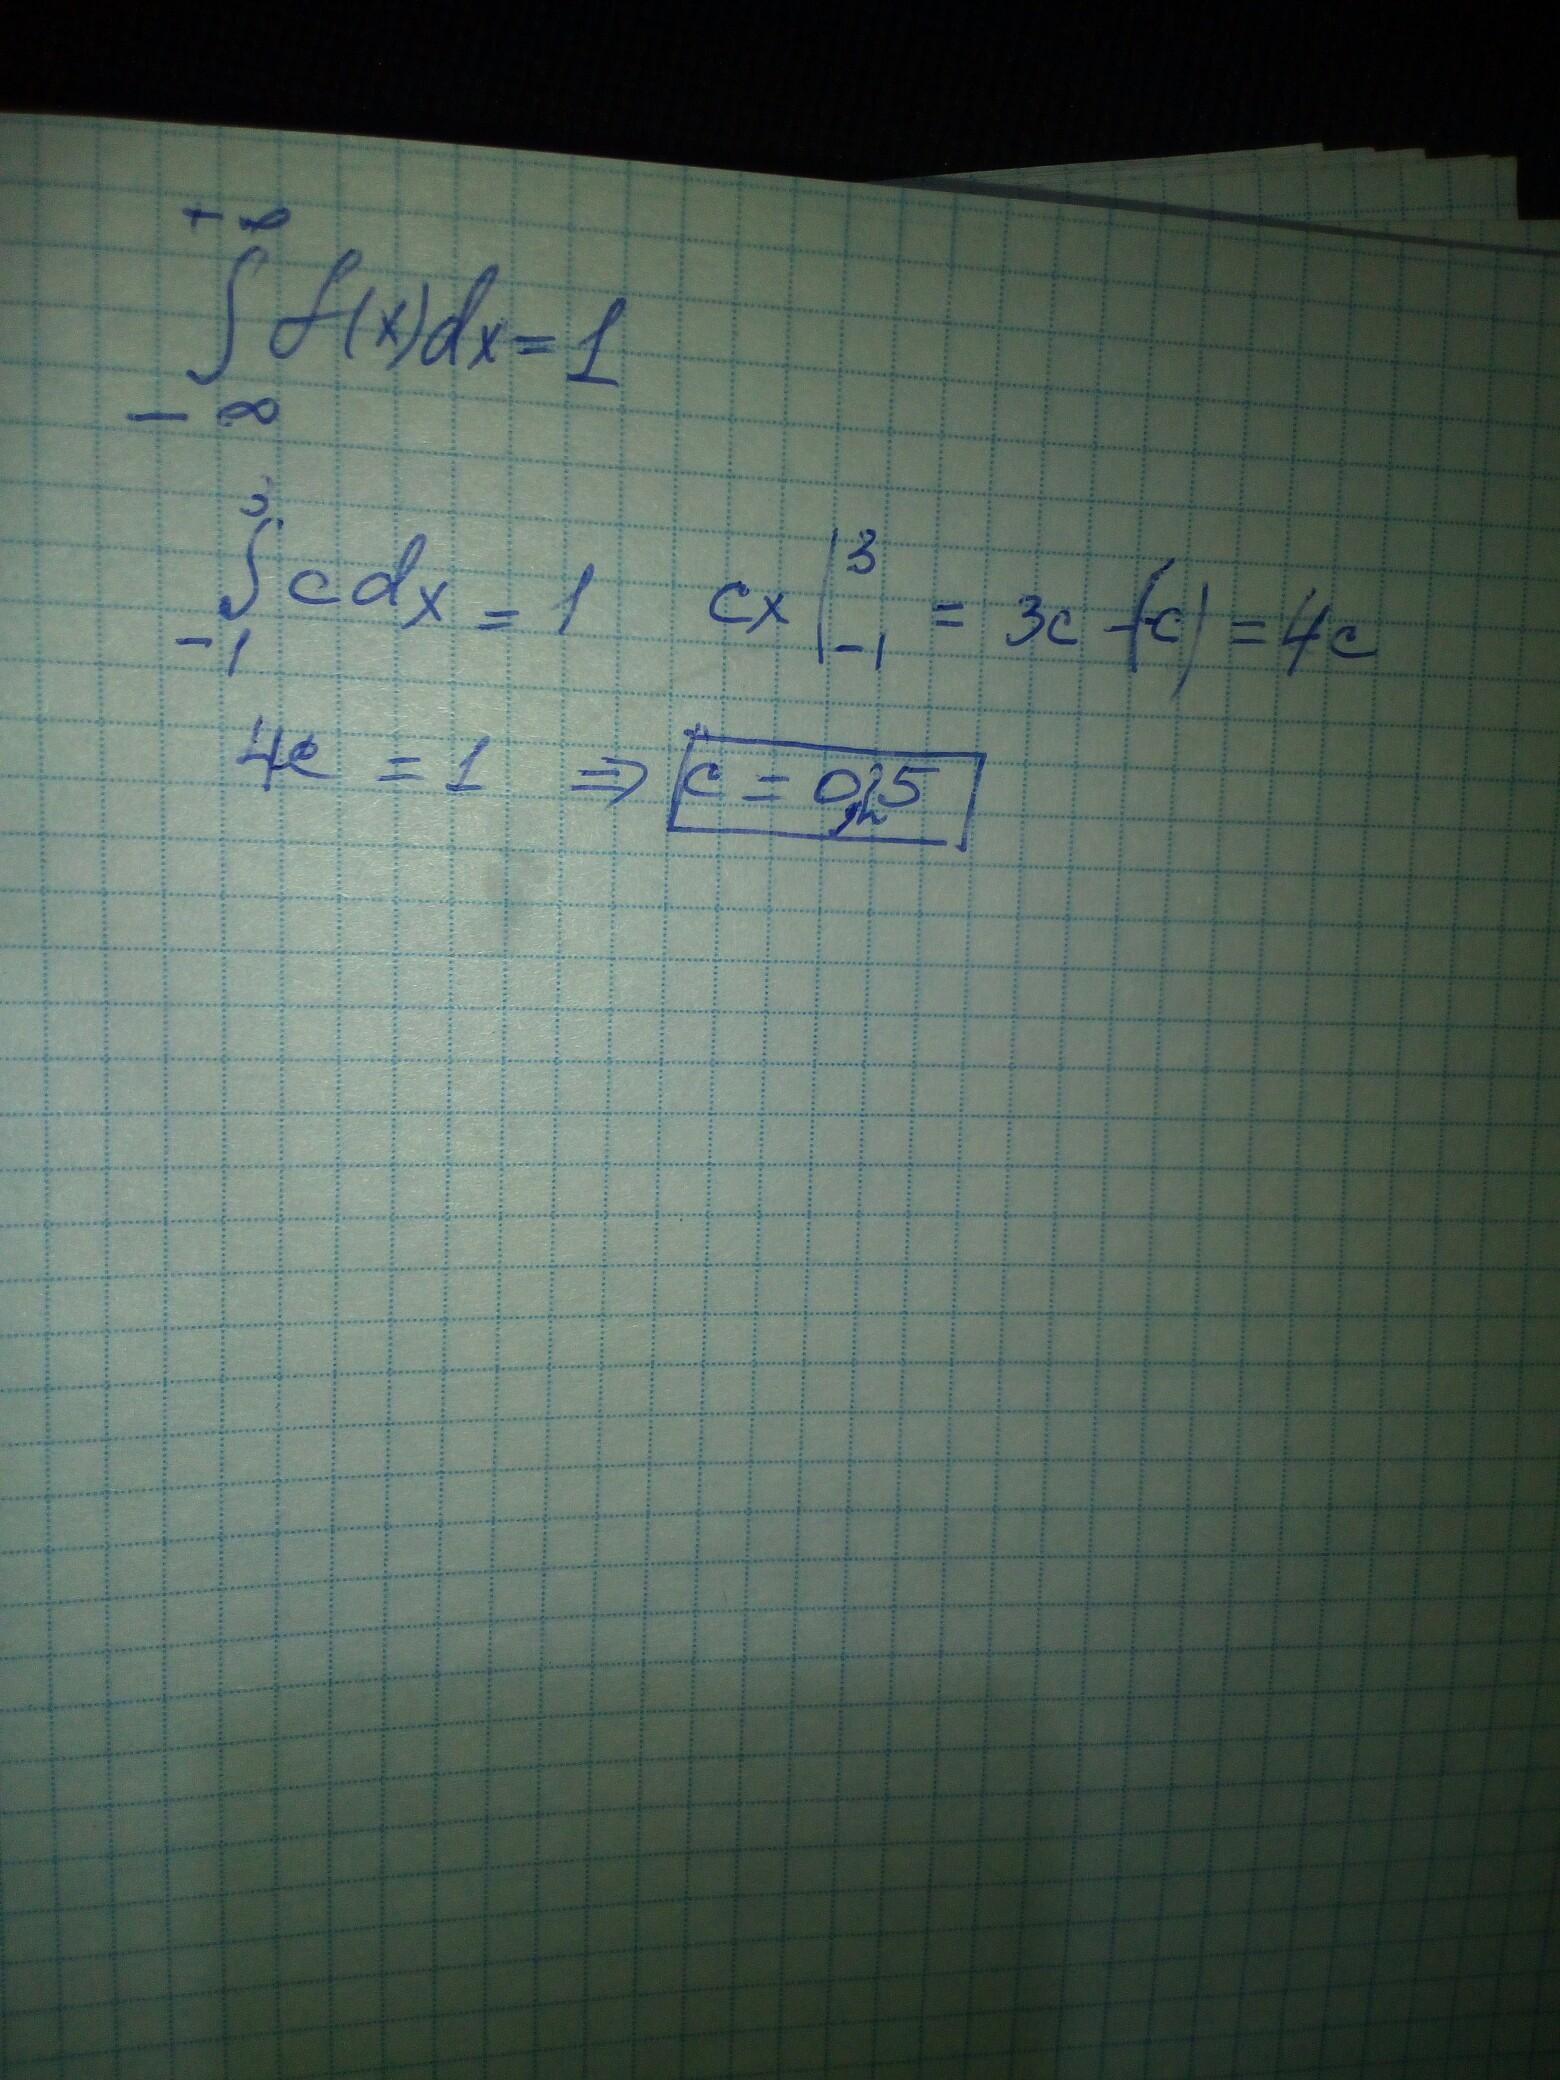 +∞
∫ f(x)dx = 1
-∞
3
∫ c dx = 1 cx |³₋₁ = 3c - (-c) = 4c
-1
4c = 1 ⇒ c = 0,25